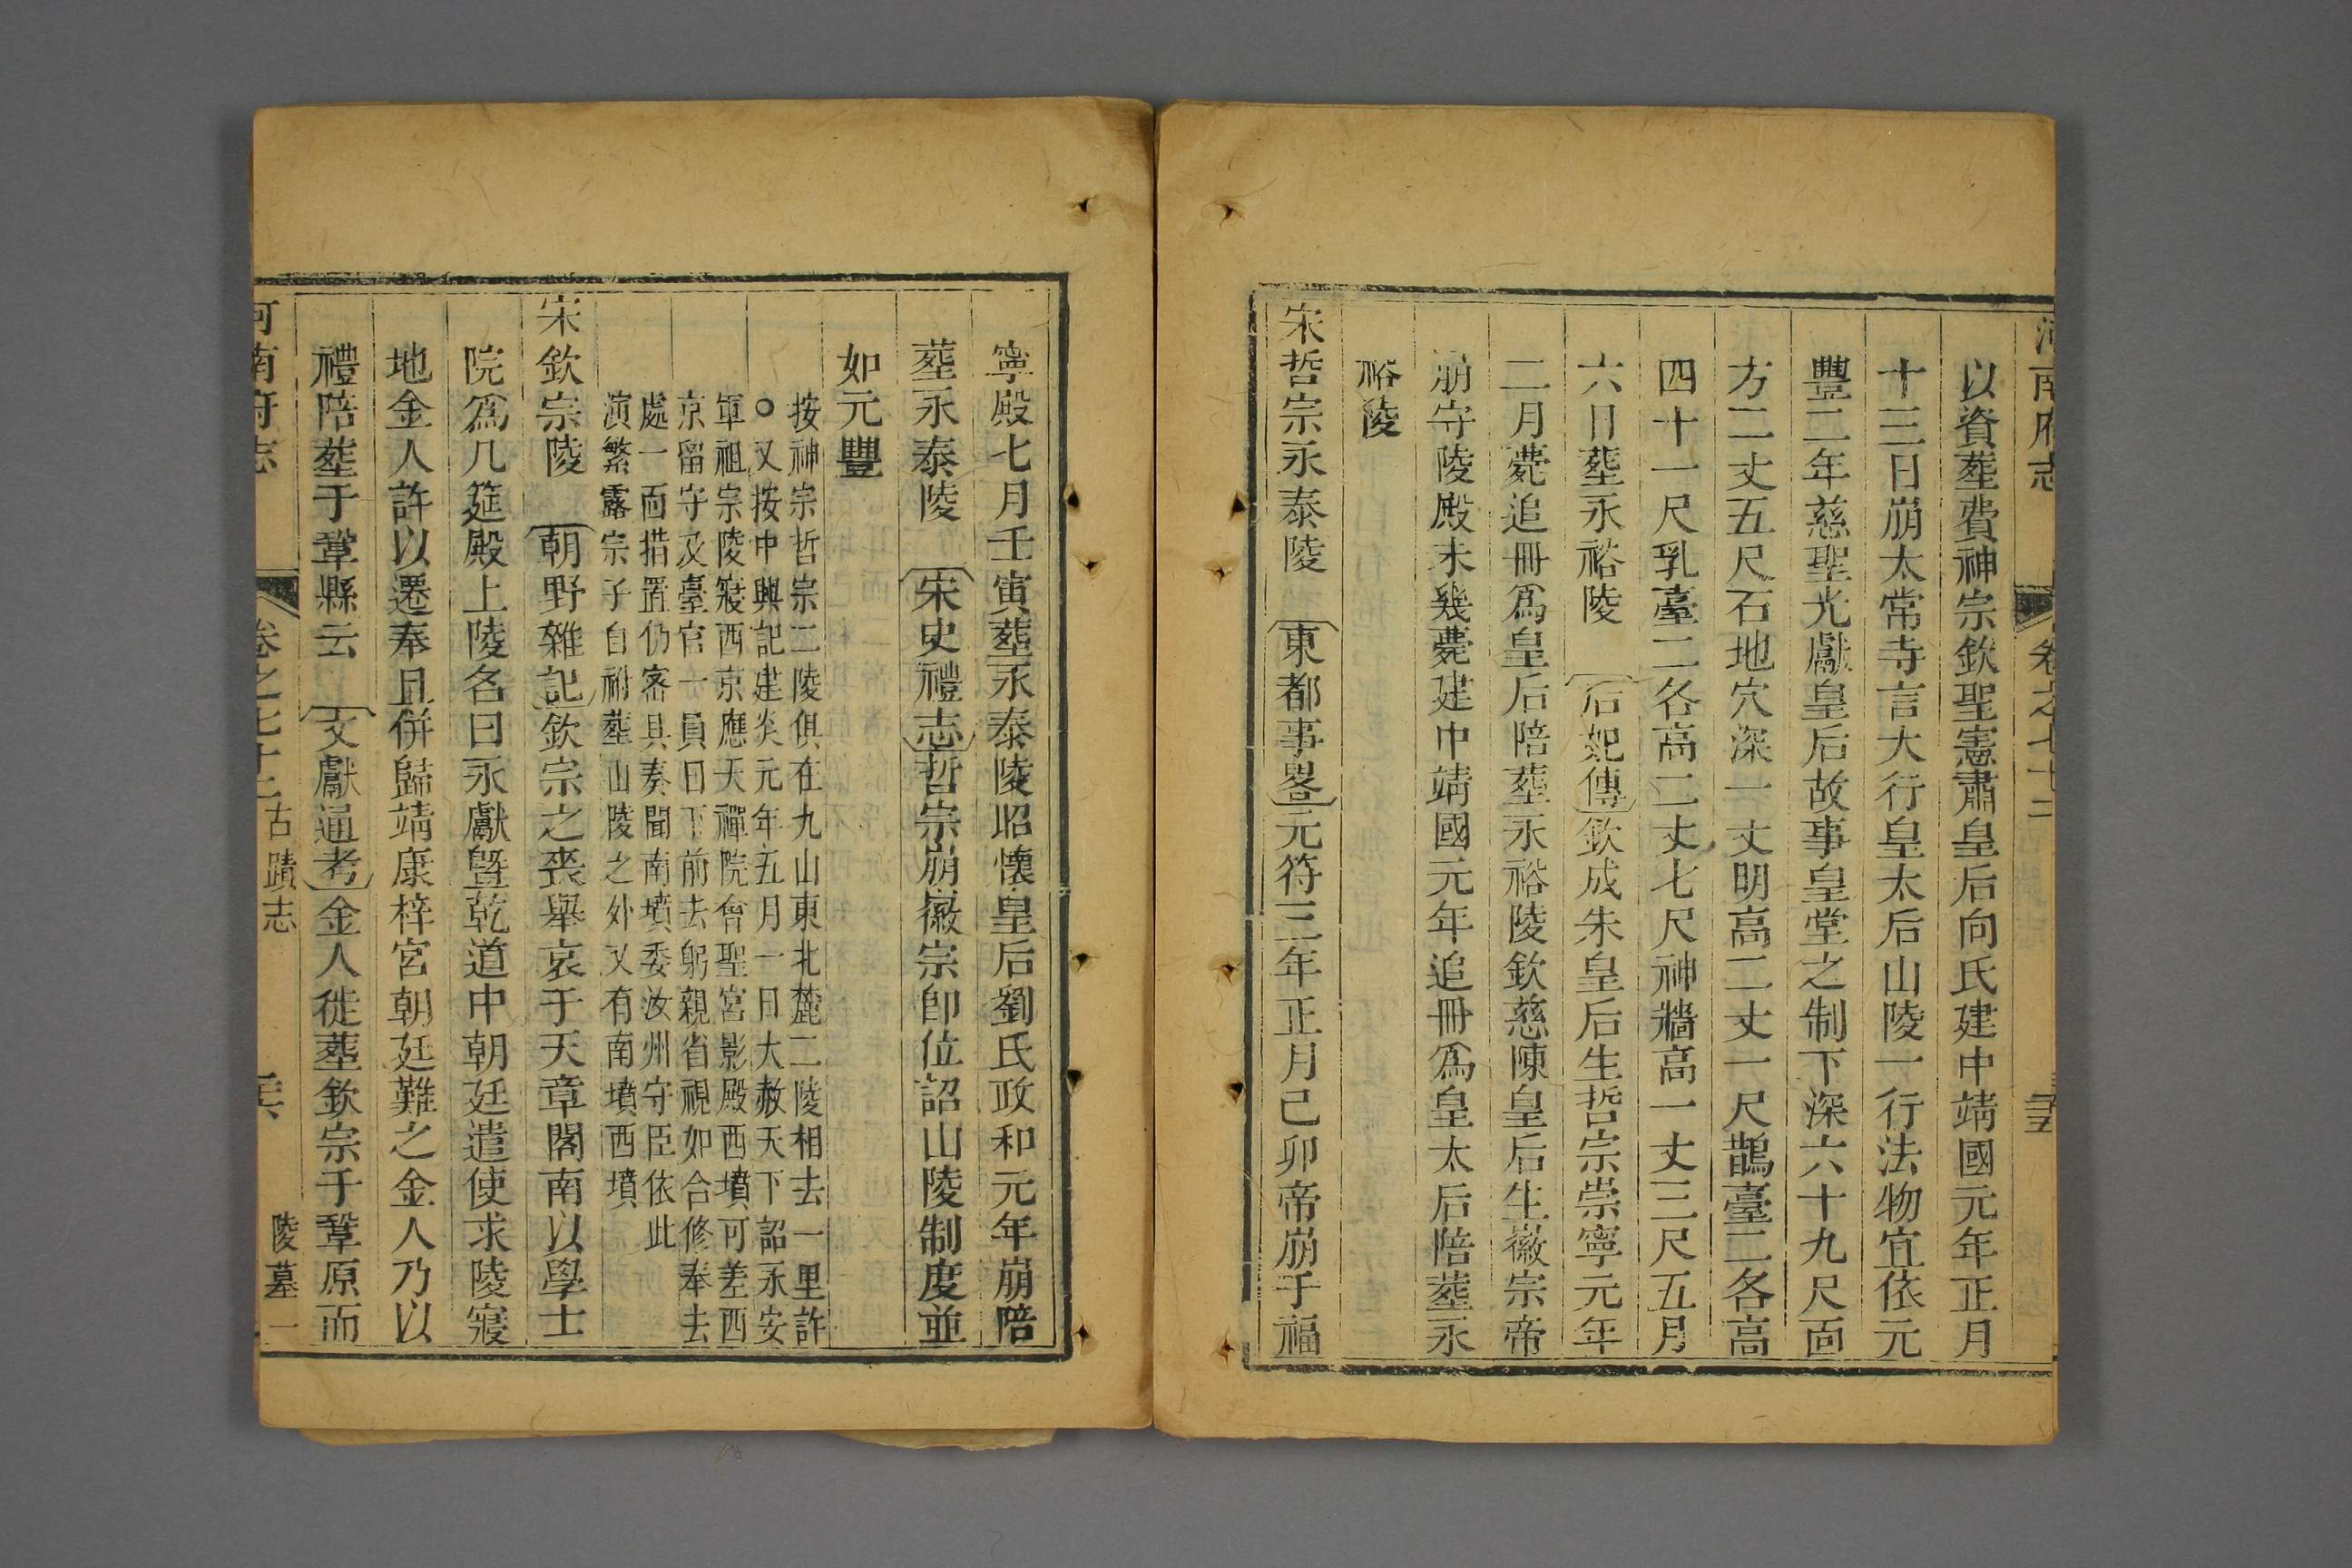 河南府志 卷之七十二 三五
以資塟費神宗欽聖憲肅皇后向氏建中靖國元年正月
十三日崩太常寺言大行皇太后山陵一行法物宜依元
豐二年慈聖光獻皇后故事皇堂之制下深六十九尺面
方二丈五尺石地穴深一丈明高二丈一尺鵲臺二各高
四十一尺乳臺二各高二丈七尺神牆高一丈三尺五月
六日塟永裕陵 后妃傳欽成朱皇后生哲宗崇寧元年
二月薨追冊爲皇后陪塟永裕陵欽慈陳皇后生徽宗帝
崩守陵殿未幾薨建中靖國元年追冊爲皇太后陪塟永
裕陵
宋哲宗永泰陵 東都事畧元符三年正月己卯帝崩于福
寧殿七月壬寅塟永泰陵昭懷皇后劉氏政和元年崩陪
塟永泰陵 宋史禮志哲宗崩徽宗卽位詔山陵制度並
如元豐
按神宗哲宗二陵俱在九山東北麓二陵相去一里許
○又按中興記建炎元年五月一日大赦天下詔永安
軍祖宗陵寢西京應天禪院會聖宮影殿西墳可差西
京留守及臺官一員日下前去躬親省視如合修奉去
處一面措置仍密具奏聞南墳委汝州守臣依此
演繁露宗子自祔塟山陵之外又有南墳西墳
宋欽宗陵 朝野雜記欽宗之喪舉哀于天章閣南以學士
院爲几筵殿上陵名曰永獻曁乾道中朝廷遣使求陵寢
地金人許以遷奉且併歸靖康梓宮朝廷難之金人乃以
禮陪塟于鞏縣云 文獻通考金人徙塟欽宗于鞏原而
河南府志 卷之七十二 古蹟志 三六 陵墓一